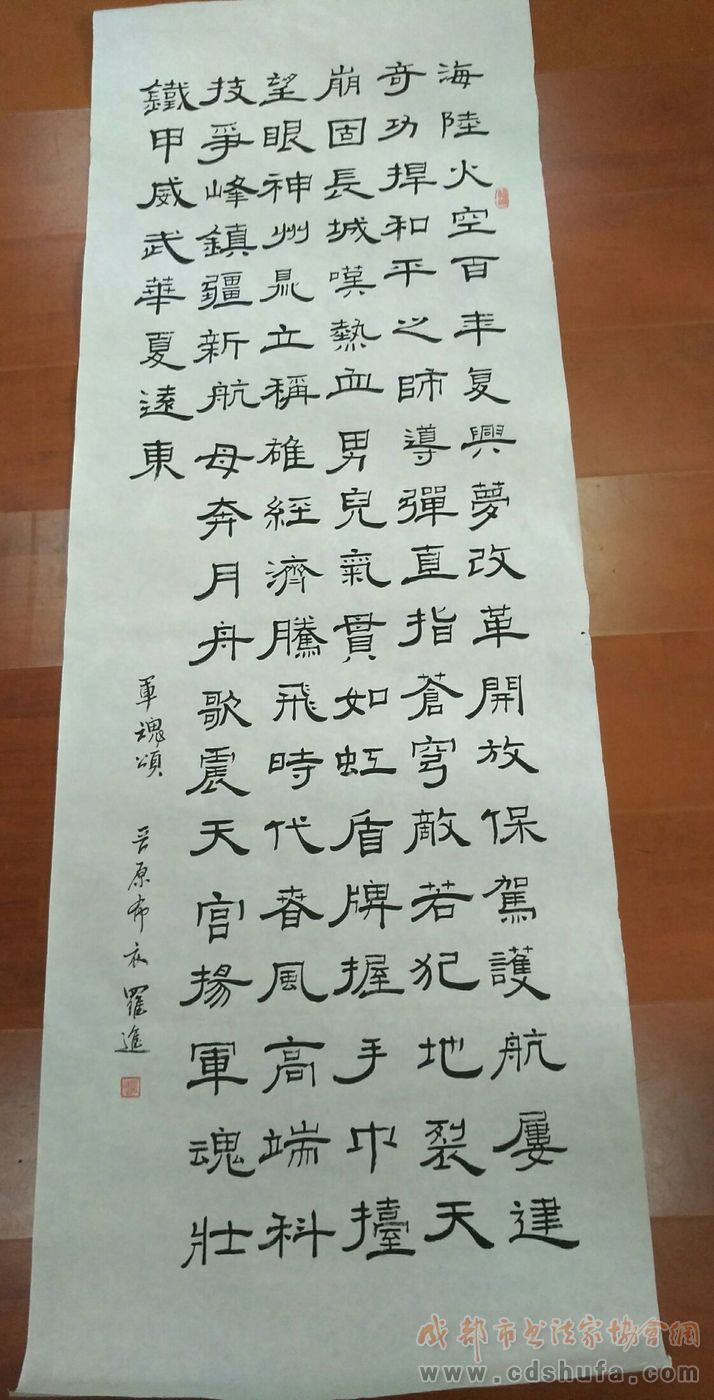 海陸火空百年复興夢改革開放保駕護航屢建
奇功捍和平之師導彈直指蒼穹敵若犯地裂天
崩固長城嘆熱血男兒氣貫如虹盾牌握手巾擡
望眼神州晁立稱雄經濟騰飛時代春風高端科
技爭峰鎮疆新航母奔月舟歌震天宮揚軍魂壯
鐵甲威武華夏遠東
軍魂頌 晉原布衣羅進
成都市书法家协會網
www.cdshufa.com